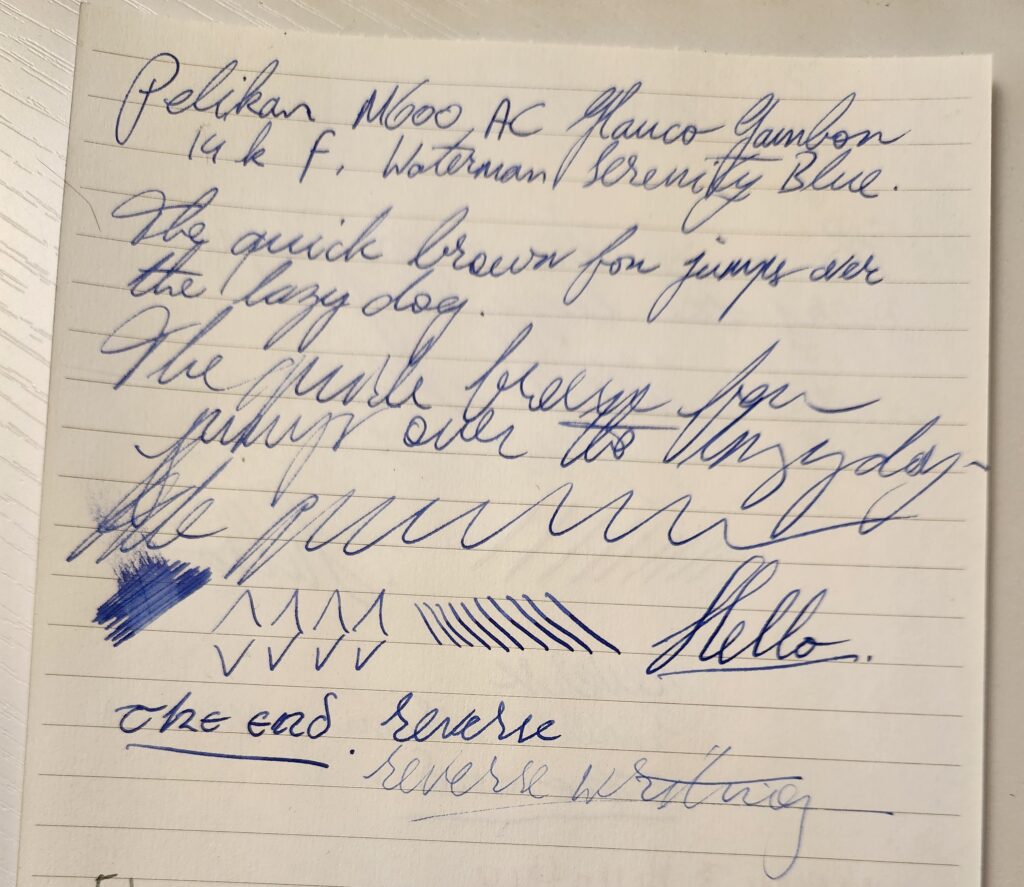 Pelikan M600 AC Glauco Gambon
14k F. Waterman Serenity Blue.
The quick brown fox jumps over
the lazy dog.
The quick brown fox
jumps over the lazy dog
The
Hello.
THE END. reverse
reverse writing